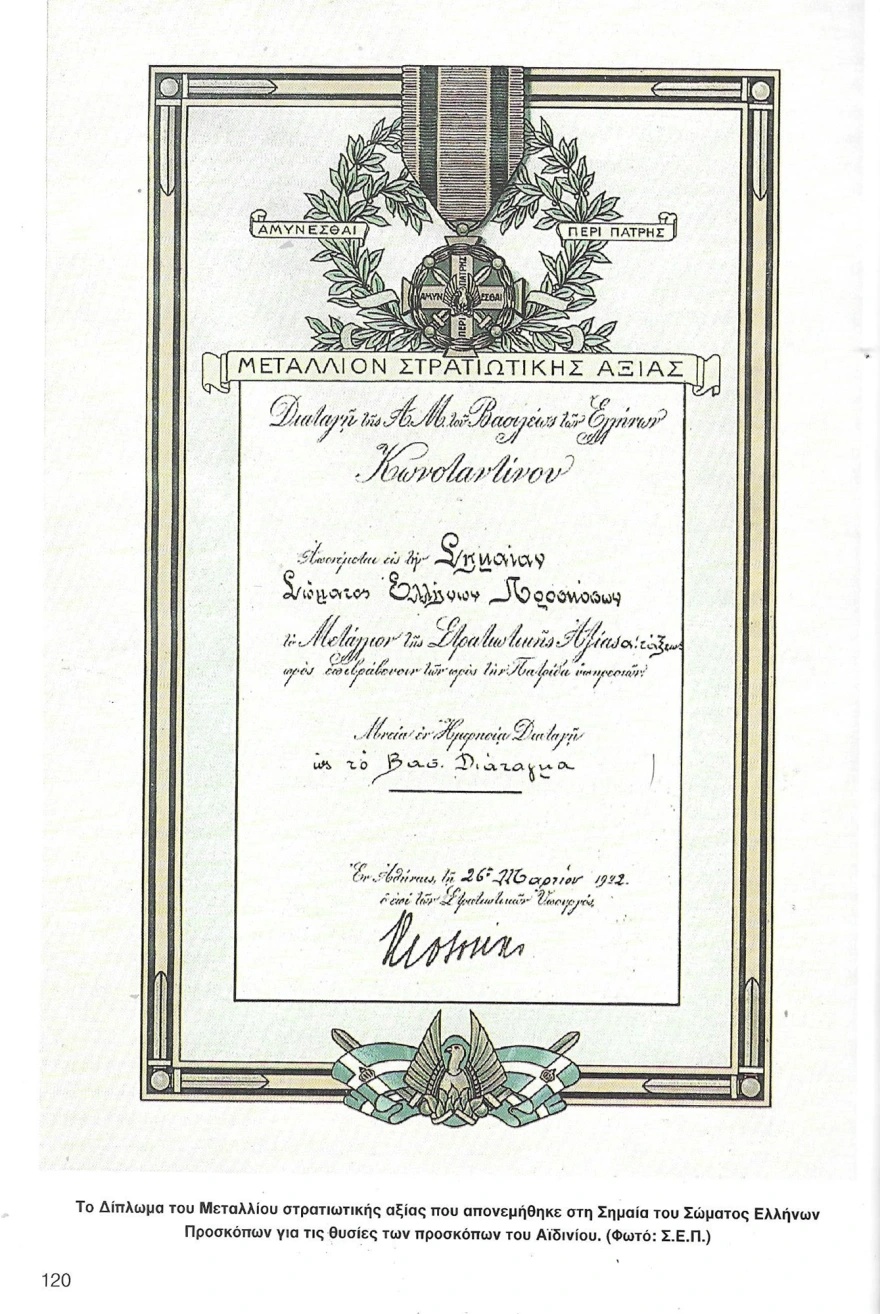 ΑΜΥΝΕΣΘΑΙ
ΠΕΡΙ ΠΑΤΡΗΣ
ΠΑΤΡΗΣ
ΑΜΥΝ ΕΣΘΑΙ
ΠΕΡΙ
ΜΕΤΑΛΛΙΟΝ ΣΤΡΑΤΙΩΤΙΚΗΣ ΑΞΙΑΣ
Διαταγῇ τῆς Α.Μ. τοῦ Βασιλέως τῶν Ἑλλήνων
Κωνσταντίνου
Ἀπονέμεται εἰς τὴν Σημαίαν
Σώματος Ἑλλήνων Προσκόπων
τὸ Μετάλλιον τῆς Στρατιωτικῆς Ἀξίας α' τάξεως
πρὸς ἐπιβράβευσιν τῶν πρὸς τὴν Πατρίδα ὑπηρεσιῶν.
Μνεία ἐν Ἡμερησίᾳ Διαταγῇ
ὡς τὸ Βασ. Διάταγμα
Ἐν Ἀθήναις, τῇ 26ῃ Μαρτίου 1922.
ὁ ἐπὶ τῶν Στρατιωτικῶν Ὑπουργός
Το Δίπλωμα του Μεταλλίου στρατιωτικής αξίας που απονεμήθηκε στη Σημαία του Σώματος Ελλήνων
Προσκόπων για τις θυσίες των προσκόπων του Αϊδινίου. (Φωτό: Σ.Ε.Π.)
120